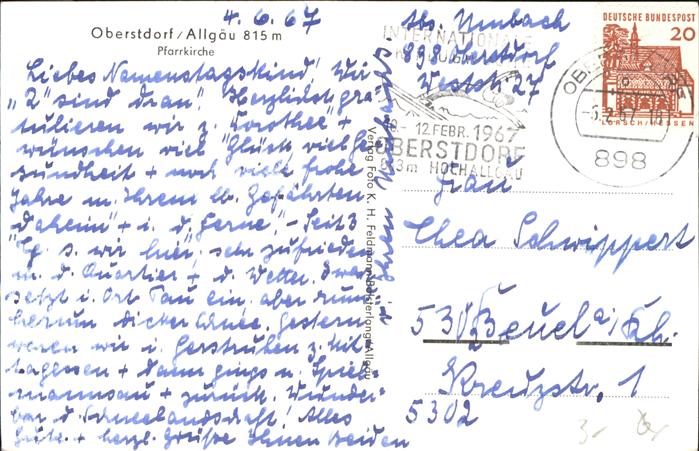 4.6.67
Oberstdorf/Allgäu 815 m
Pfarrkirche
Liebes Namenstagskind! Wir
"2" sind dran! Herzlichst gra-
tulieren wir z. "Dorothee" +
wünschen viel Glück viel Ge-
sundheit + noch viele frohe
Jahre m. Ihrem lb. Gefährten
"Daheim" + i. d. "Ferne". - Seit 3
Tg. s. wir hier, sehr zufrieden
m. d. Quartier + d. Wetter. Zwar
setzt i. Ort Tau ein, aber rund
herum dicker Schnee. Gestern
waren wir i. Gerstruben z. Mit-
tagessen + dann gings n. Spiel-
mannsau + zurück. Wunder-
bar d. Schneelandschaft! Alles
Gute + herzl. Grüße Ihnen Beiden
Ihren
Verlag Foto K. H. Feldmann Oberstdorf
Abs. Umbach
898 Oberstdorf
Weststr. 27
INTERNATIONALE
- 12. FEBR. 1967
OBERSTDORF
843m HOCHALLGÄU
DEUTSCHE BUNDESPOST
20
LORSCH/HESSEN
898
Frau
Thea Schwippert
53 Beuel a/Rh.
Kreuzstr. 1
5302
3-